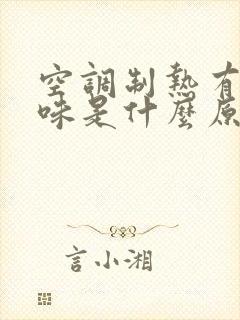 空調制熱有
味是什麼原
言小湘